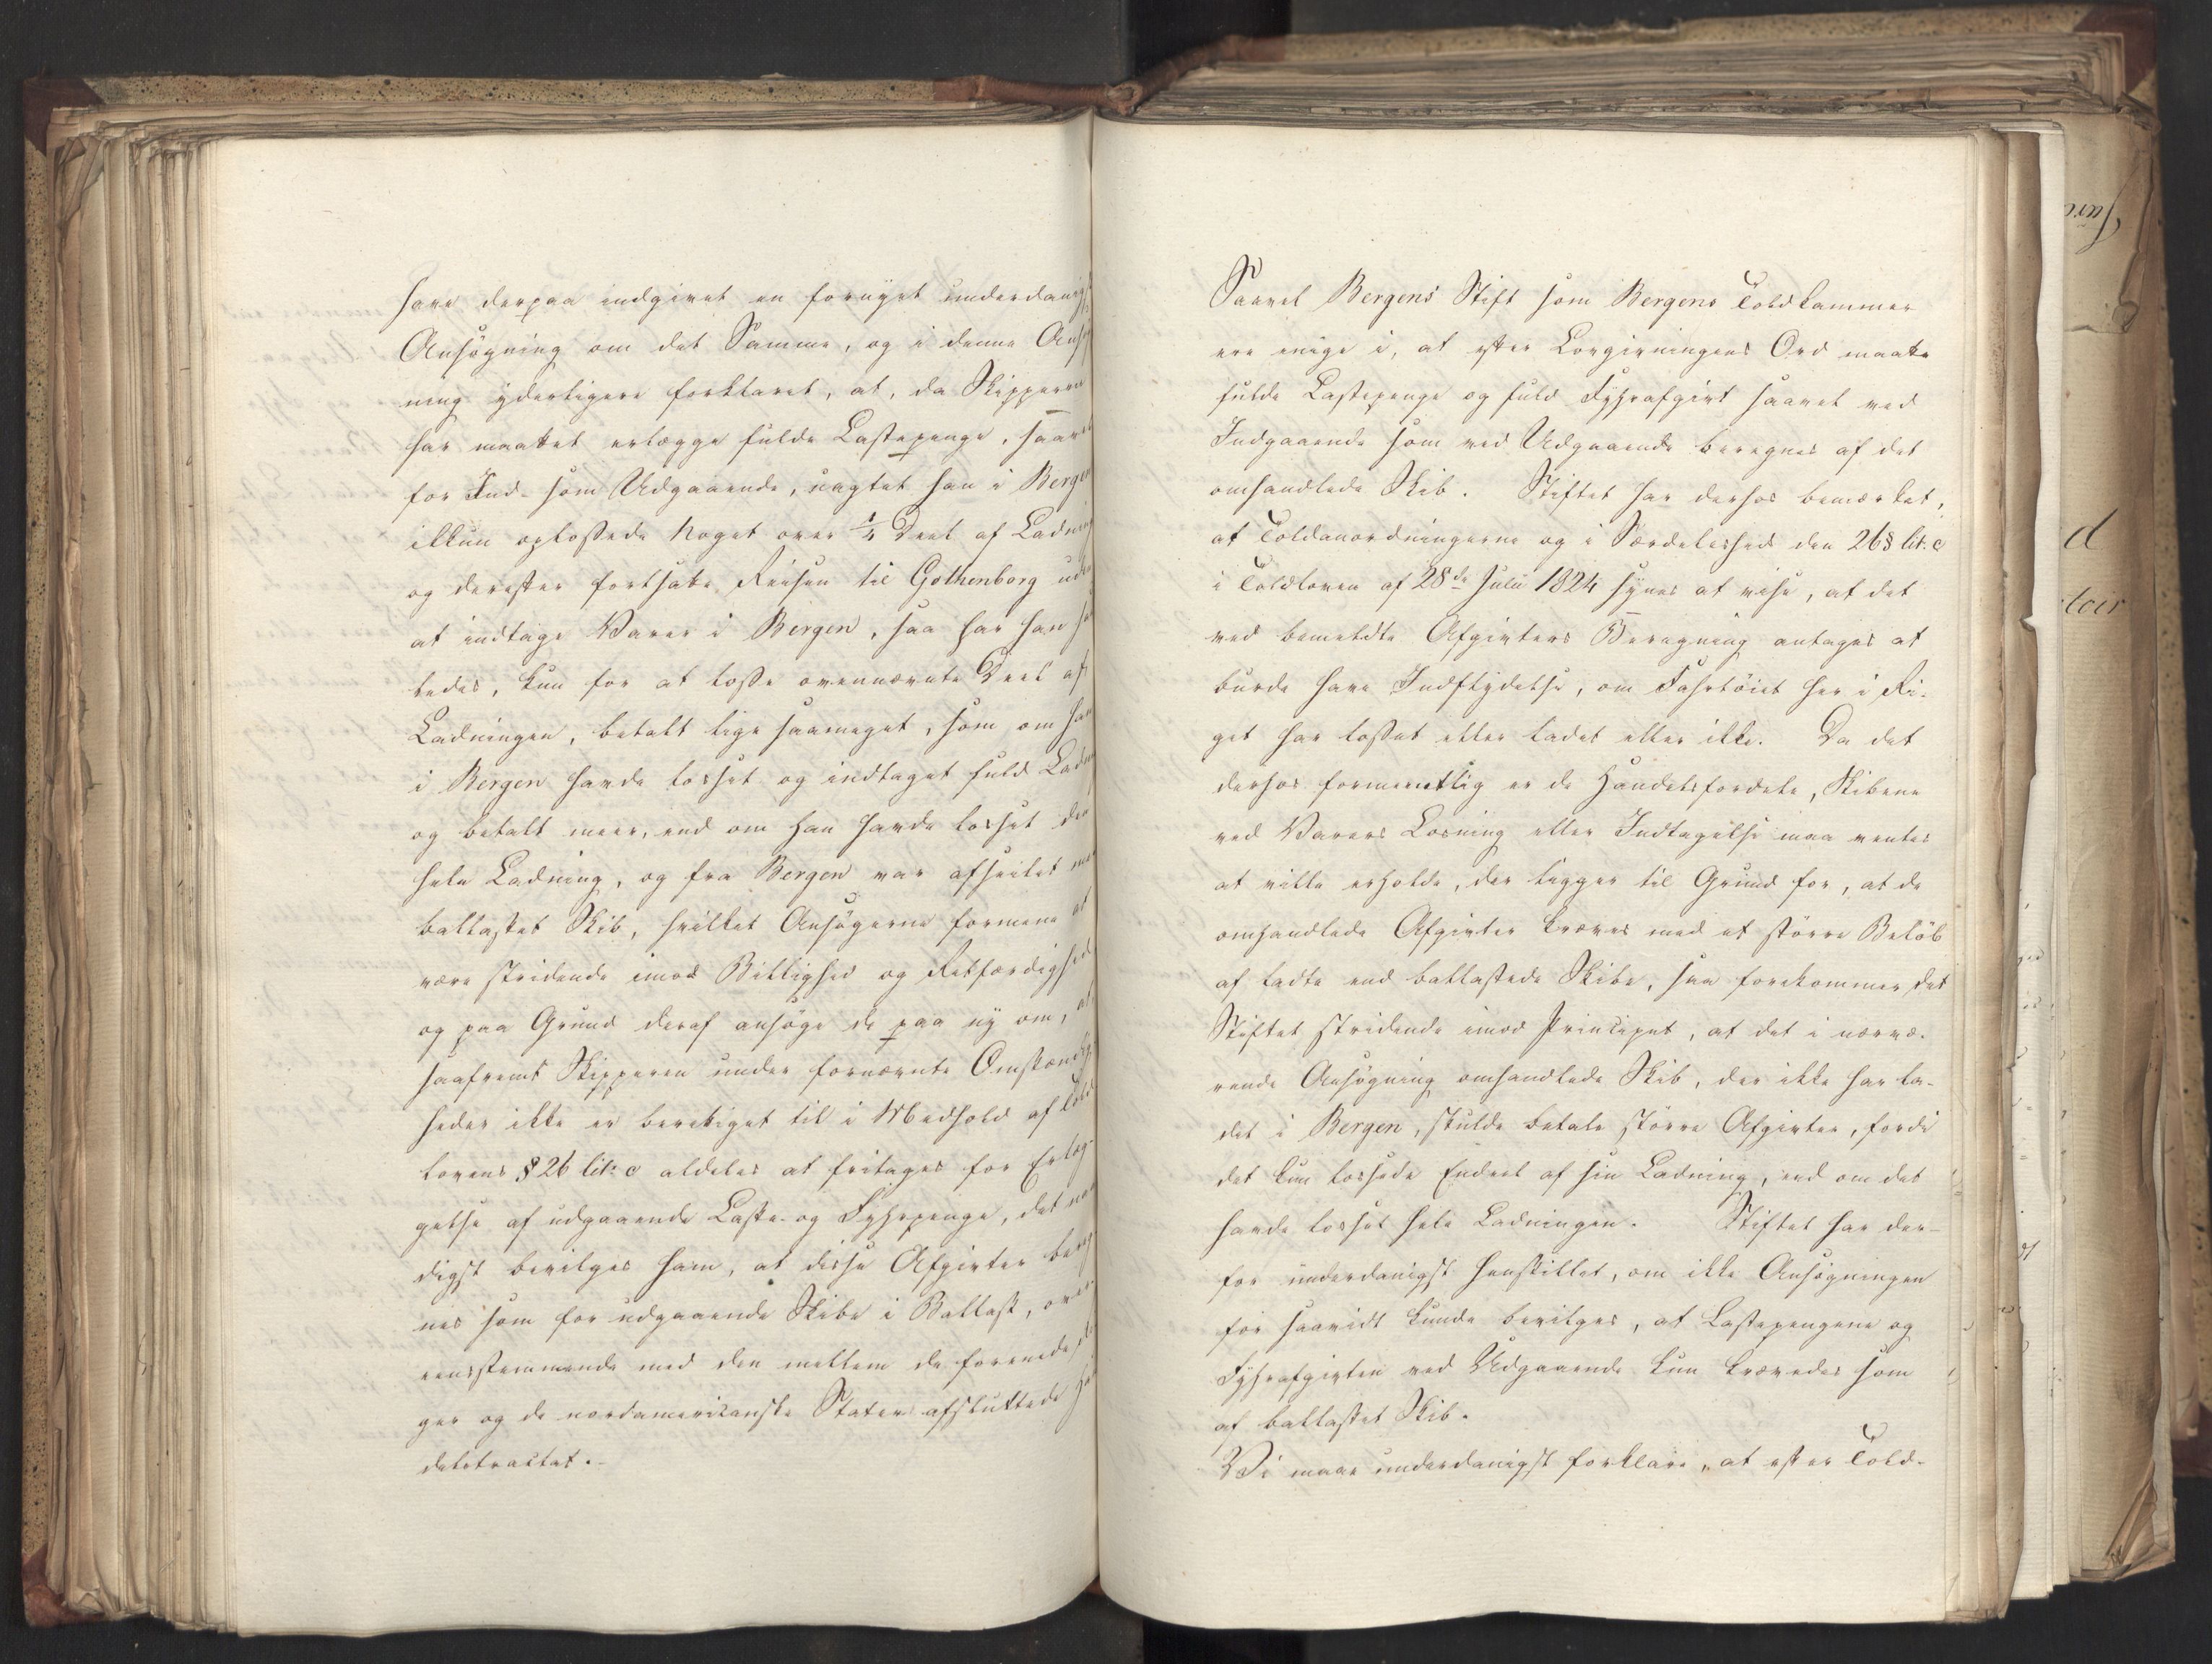 have derpaa indgivet en fornyet underdanigst
Ansøgning om det Samme, og i denne Ansøg
ning yderligere forklaret, at, da Skipperen
har maattet erlægge fulde Lastepenge, saavel
for Ind- som Udgaaende, uagtet han i Bergen
ikkun oplossede Noget over 1/4 Deel af Ladning
og derefter fortsatte Reisen til Gothenborg uden
at indtage Varer i Bergen, saa har han saa
ledes, kun for at losse ovennævnte Deel af
Ladningen, betalt lige saameget, som om han
i Bergen havde losset og indtaget fuld Ladn
og betalt meer, end om han havde losset den
hele Ladning, og fra Bergen var afseilet med
ballastet Skib, hvilket Ansøgerne formene at
være stridende imod Billighed og Retfærdighed
og paa Grund deraf ansøge de paa ny om, at
saafremt Skipperen under fornævnte Omstændig
heder ikke er berettiget til i Medhold af Told
lovens § 26 lit: c aldeles at fritages for Erlæg-
gelse af udgaaende Laste- og Fyhrpenge, det naa
digst bevilges ham, at disse Afgivter bereg
nes som for udgaaende Skibe i Ballast, over
eensstemmende med den mellem de forenede Ri
ger og de nordamericanske Stater afsluttede Han
delstractat.
Saavel Bergens Stift som Bergens Toldkammer
ere enige i, at efter Lovgivningens Ord maatte
fulde Lastepenge og fuld Fyhrafgivt saavel ved
Indgaaende som ved Udgaaende beregnes af det
omhandlede Skib. Stiftet har derhos bemærket,
at Toldanordningerne og i Særdeleshed den 26 § lit. c
i Toldloven af 28de Julii 1824 synes at vise, at det
ved bemeldte Afgivters Beregning antages at
burde have Indflydelse, om Fahrtøiet her i Ri-
get har losset eller ladet eller ikke. Da det
derhos formeentlig er de Handelsfordele, Skibene
ved Varers Losning eller Indtagelse maa ventes
at ville erholde, der ligger til Grund for, at de
omhandlede Afgivter kræves med et større Beløb
af ladte end ballastede Skibe, saa forekommer det
Stiftet stridende imod Principet, at det i nærvæ-
rende Ansøgning omhandlede Skib, der ikke har la-
det i Bergen, skulde betale større Afgivter, fordi
det kun lossede Endeel af sin Ladning, end om det
havde losset hele Ladningen. Stiftet har der-
for underdanigst henstillet, om ikke Ansøgningen
for saavidt kunde bevilges, at Lastepengene og
Fyhrafgivten ved Udgaaende kun krævedes som
af ballastet Skib.
Vi maae underdanigst forklare, at efter Told-